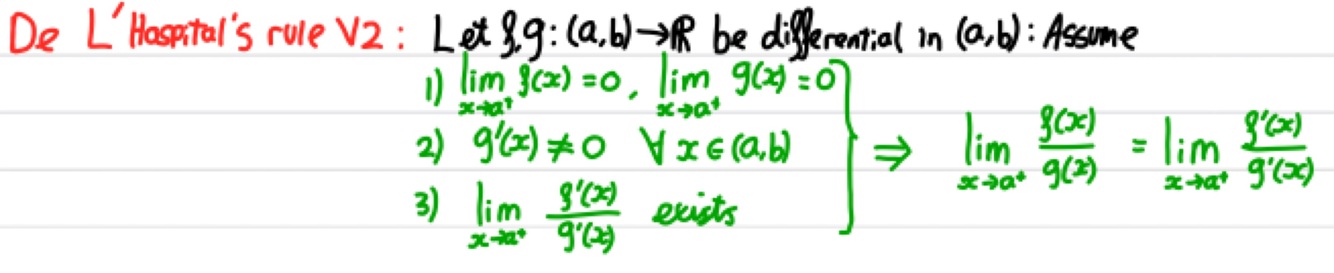 De L'Hospital's rule V2: Let f,g: (a,b)→ℝ be differential in (a,b): Assume
1) lim x→a⁺ f(x) = 0, lim x→a⁺ g(x) = 0
2) g'(x) ≠ 0 ∀ x ∈ (a,b) ⇒ lim x→a⁺ f(x)/g(x) = lim x→a⁺ f'(x)/g'(x)
3) lim x→a⁺ f'(x)/g'(x) exists